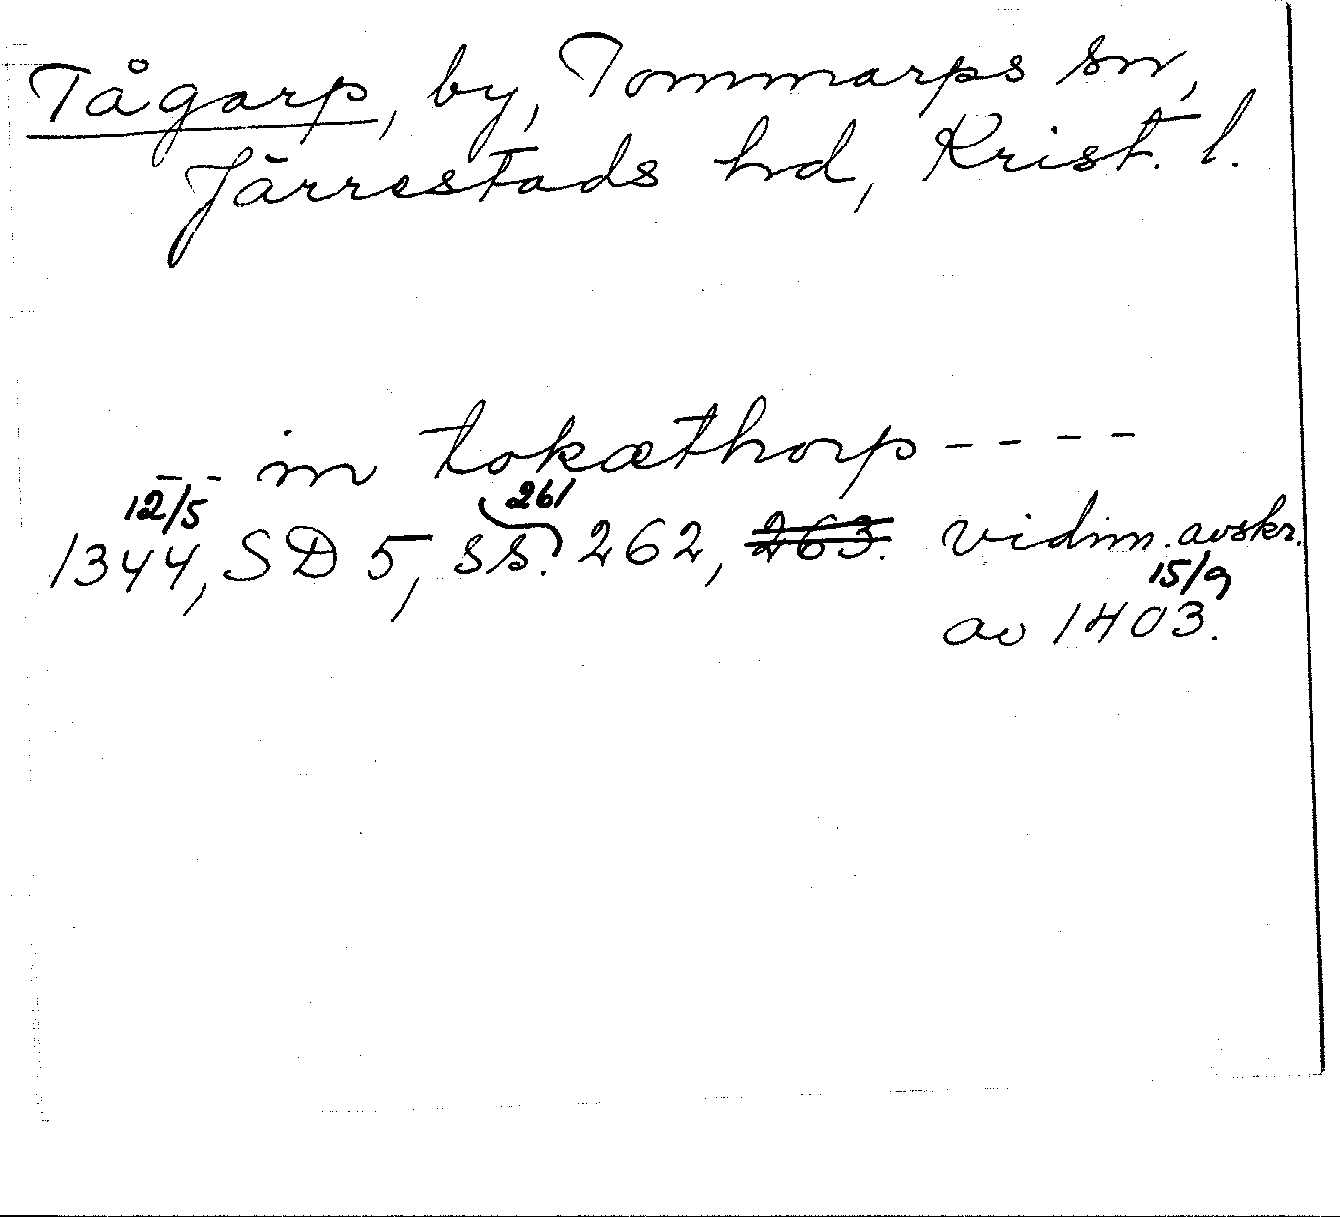 Tågarp, by, Tommarps sn,
Järrestads hd, Krist. l.
-- in tokæthorp ----
12/5 261
1344, SD 5, ss. 262, 263. vidim. avskr.
15/9
av 1403.